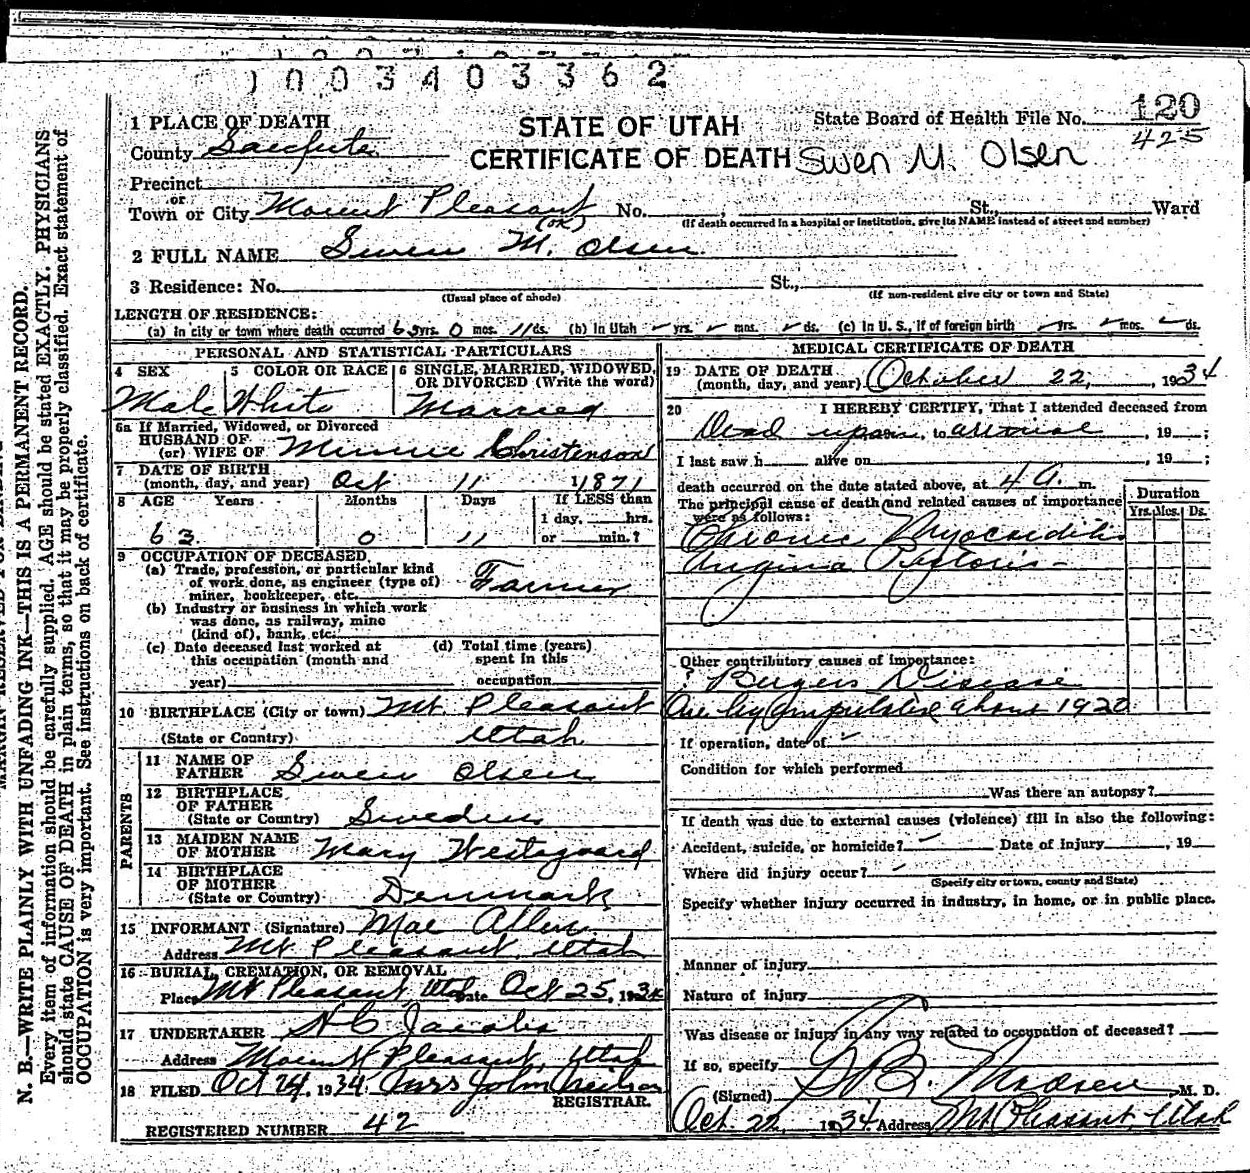 1003403362
1 PLACE OF DEATH
County Sanpete
STATE OF UTAH
CERTIFICATE OF DEATH
State Board of Health File No. 120
425
Swen M. Olsen
Precinct
or
Town or City Mount Pleasant No. , St., Ward
(If death occurred in a hospital or institution, give its NAME instead of street and number)
(OK)
2 FULL NAME Swen M. Olsen
3 Residence: No. St.,
(Usual place of abode) (If non-resident give city or town and State)
LENGTH OF RESIDENCE:
(a) in city or town where death occurred 63 yrs. 0 mos. 11 ds. (b) In Utah yrs. mos. ds. (c) In U. S., if of foreign birth yrs. mos. ds.
PERSONAL AND STATISTICAL PARTICULARS
4 SEX
Male
5 COLOR OR RACE
White
6 SINGLE, MARRIED, WIDOWED,
OR DIVORCED (Write the word)
Married
6a If Married, Widowed, or Divorced
HUSBAND OF
(or) WIFE OF Minnie Christenson
7 DATE OF BIRTH
(month, day, and year) Oct 11 1871
8 AGE Years Months Days If LESS than
1 day, hrs.
or min.?
63 0 11
9 OCCUPATION OF DECEASED
(a) Trade, profession, or particular kind
of work done, as engineer (type of)
miner, bookkeeper, etc. Farmer
(b) Industry or business in which work
was done, as railway, mine
(kind of), bank, etc.
(c) Date deceased last worked at
this occupation (month and
year)
(d) Total time (years)
spent in this
occupation
10 BIRTHPLACE (City or town) Mt. Pleasant
(State or Country) Utah
PARENTS
11 NAME OF
FATHER Swen Olsen
12 BIRTHPLACE
OF FATHER
(State or Country) Sweden
13 MAIDEN NAME
OF MOTHER Mary
14 BIRTHPLACE
OF MOTHER
(State or Country) Denmark
15 INFORMANT (Signature) Mae Allen
Address Mt Pleasant, Utah
16 BURIAL, CREMATION, OR REMOVAL
Place Mt Pleasant, Utah Date Oct 25, 1934
17 UNDERTAKER
Address Mount Pleasant, Utah
18 FILED Oct 24, 1934. Mrs John Neilson
REGISTRAR.
REGISTERED NUMBER 42
MEDICAL CERTIFICATE OF DEATH
19 DATE OF DEATH
(month, day, and year) October 22, 1934
20 I HEREBY CERTIFY, That I attended deceased from
Dead upon, to arrival, 19 ;
I last saw h alive on , 19 ;
death occurred on the date stated above, at 4 A. m.
The principal cause of death and related causes of importance
were as follows:
Duration
Yrs. Mos. Ds.
Chronic Myocarditis
Angina Pectoris
Other contributory causes of importance:
? Buergers Disease
One leg amputated about 1920
If operation, date of
Condition for which performed
Was there an autopsy?
If death was due to external causes (violence) fill in also the following:
Accident, suicide, or homicide? Date of Injury , 19
Where did injury occur?
(Specify city or town, county and State)
Specify whether injury occurred in industry, in home, or in public place.
Manner of injury
Nature of injury
Was disease or injury in any way related to occupation of deceased?
If so, specify
(Signed) Madsen M. D.
Oct. 22, 1934 Address Mt Pleasant, Utah
N. B.—WRITE PLAINLY WITH UNFADING INK—THIS IS A PERMANENT RECORD.
Every item of information should be carefully supplied. AGE should be stated EXACTLY. PHYSICIANS
should state CAUSE OF DEATH in plain terms, so that it may be properly classified. Exact statement of
OCCUPATION is very important. See instructions on back of certificate.